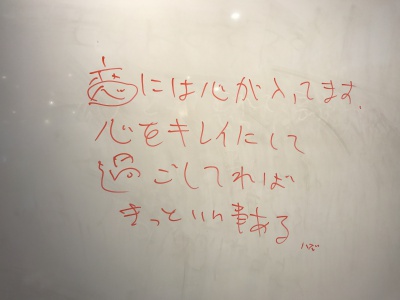 恋には心が入ってます。
心をキレイにして
過ごしてれば
きっといい事ある
ハズ